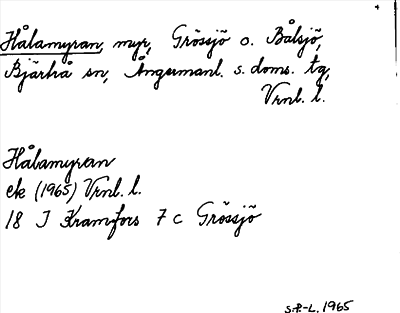 Hålamyran, myr, Grössjö o. Bålsjö,
Bjärtrå sn, Ångermanl. s. doms. tg,
Vrnl. l.
Hålamyran
ek (1965) Vrnl. l.
18 J Kramfors 7 c Grössjö
S.P.-L. 1965